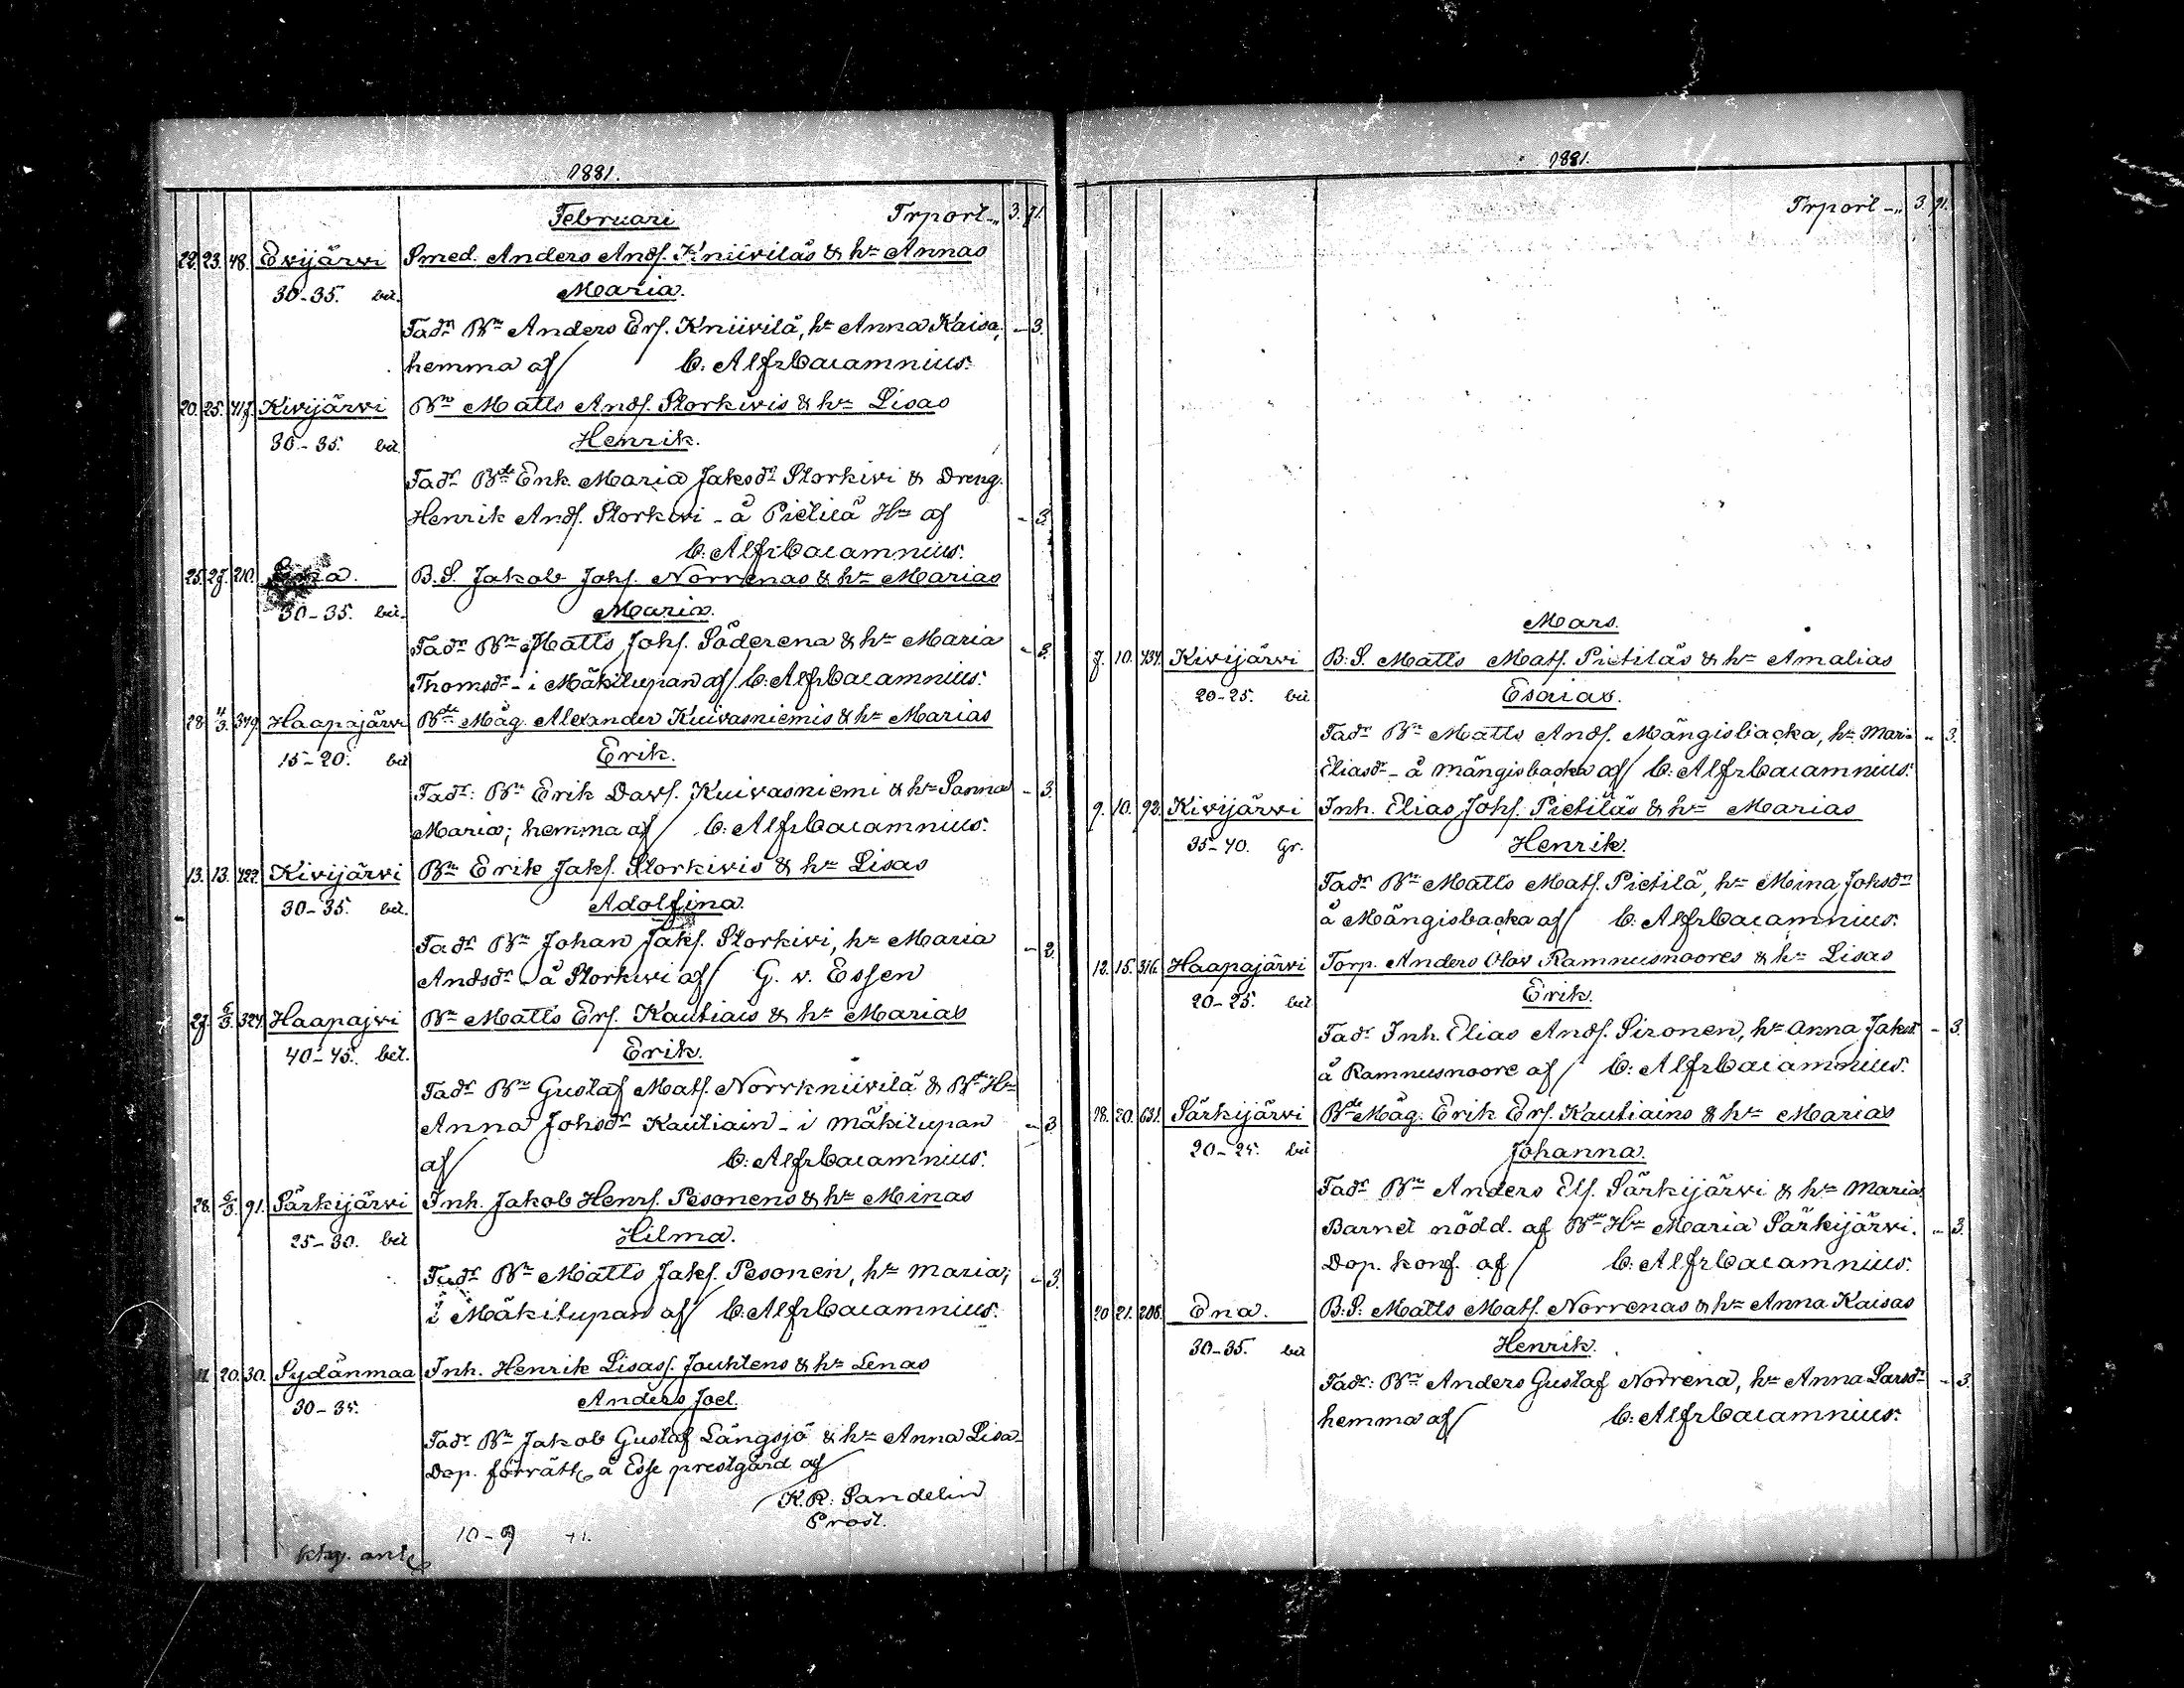 1881.
Februari Trport -„ 3. 71.
22. 23. 48. Evijärvi Smed. Anders Ands. Kniiviläs & hn Annas
30-35. bet. Maria.
Fadr Bn Anders Ers. Kniivilä, hn Anna Kaisa, - 3.
hemma af/ C: Alfr Calamnius.
20. 25. 417. Kivijärvi Bn Matts Ands. Storkivis & hn Lisas
30-35. bet. Henrik.
Fadr Bde Enk. Maria Jaksdr Storkivi & Dreng.
Henrik Ands. Storkivi - å Pietilä Hn af - 3.
C: Alfr Calamnius.
25. 27. 210. Ena. B.S. Jakob Johs. Norrenas & hn Marias
30-35. bet. Maria.
Fadr Bn Matts Johs. Söderena & hn Maria - 3.
Thomsdr - i Mäkitupan af/ C: Alfr Calamnius.
28. 4/3. 349. Haapajärvi Bde Måg. Alexander Kuivasniemis & hn Marias
15-20. bet Erik.
Fadr: Bn Erik Davs. Kuivasniemi & hn Sanna - 3.
Maria; hemma af/ C: Alfr Calamnius.
13. 13. 422. Kivijärvi Bn Erik Jaks. Storkivis & hn Lisas
30-35. bet. Adolfina.
Fadr Bn Johan Jaks. Storkivi, hn Maria - 2.
Andsdr - å Storkivi af/ G. v. Essen
27. 6/3. 324. Haapajvi Bn Matts Ers. Kautiais & hn Marias
40-45. bet. Erik.
Fadr Bn Gustaf Mats. Norrkniivilä & Bde Hn
Anna Johsdr Kautiain - i Mäkitupan - 3.
af/ C: Alfr Calamnius.
28. 6/3. 91. Särkijärvi Inh. Jakob Henrs. Pesonens & hn Minas
25-30. bet Hilma.
Fadr Bn Matts Jaks. Pesonen, hn Maria; - 3.
i Mäkitupan af/ C: Alfr Calamnius.
11. 20. 30. Sydänmaa Inh. Henrik Lisass. Jouhtens & hn Lenas
30-35. Anders Joel.
Fadr Bn Jakob Gustaf Långsjö & hn Anna Lisa -
Dop. förrätt å Esse prestgård af/
K.R: Sandelin
Prost.
10-9 71.
1881.
Trport -„ 3. 91.
Mars.
7. 10. 434. Kivijärvi B:S. Matts Mats. Pietiläs & hn Amalias
20-25. bet Esaias.
Fadr Bn Matts Ands. Mängisbacka, hn Mari- - 3.
Eliasdr - å Mängisbacka af/ C: Alfr Calamnius.
9. 10. 92. Kivijärvi Inh. Elias Johs. Pietiläs & hn Marias
35-40. Gr. Henrik.
Fadr Bn Matts Mats. Pietilä, hn Mina Johsdr
å Mängisbacka af/ C: Alfr Calamnius.
12. 15. 316. Haapajärvi Torp. Anders Olov Ramnusnoores & hn Lisas
20-25. bet Erik.
Fadr Inh. Elias Ands. Sironen, hn Anna Jaksdr - 3.
å Ramnusnoore af/ C: Alfr Calamnius.
18. 20. 631. Särkijärvi Bde Måg. Erik Ers. Kautiains & hn Marias
20-25. bet Johanna.
Fadr Bn Anders Els. Särkijärvi & hn Maria.
Barnet nödd. af Bde Hn Maria Särkijärvi. - 3.
Dop. konf. af/ C: Alfr Calamnius.
20 21. 208. Ena. B:S: Matts Mats. Norrenas & hn Anna Kaisas
30-35. bet Henrik.
Fadr: Bn Anders Gustaf Norrena, hn Anna Larsdr - 3.
hemma af/ C: Alfr Calamnius.